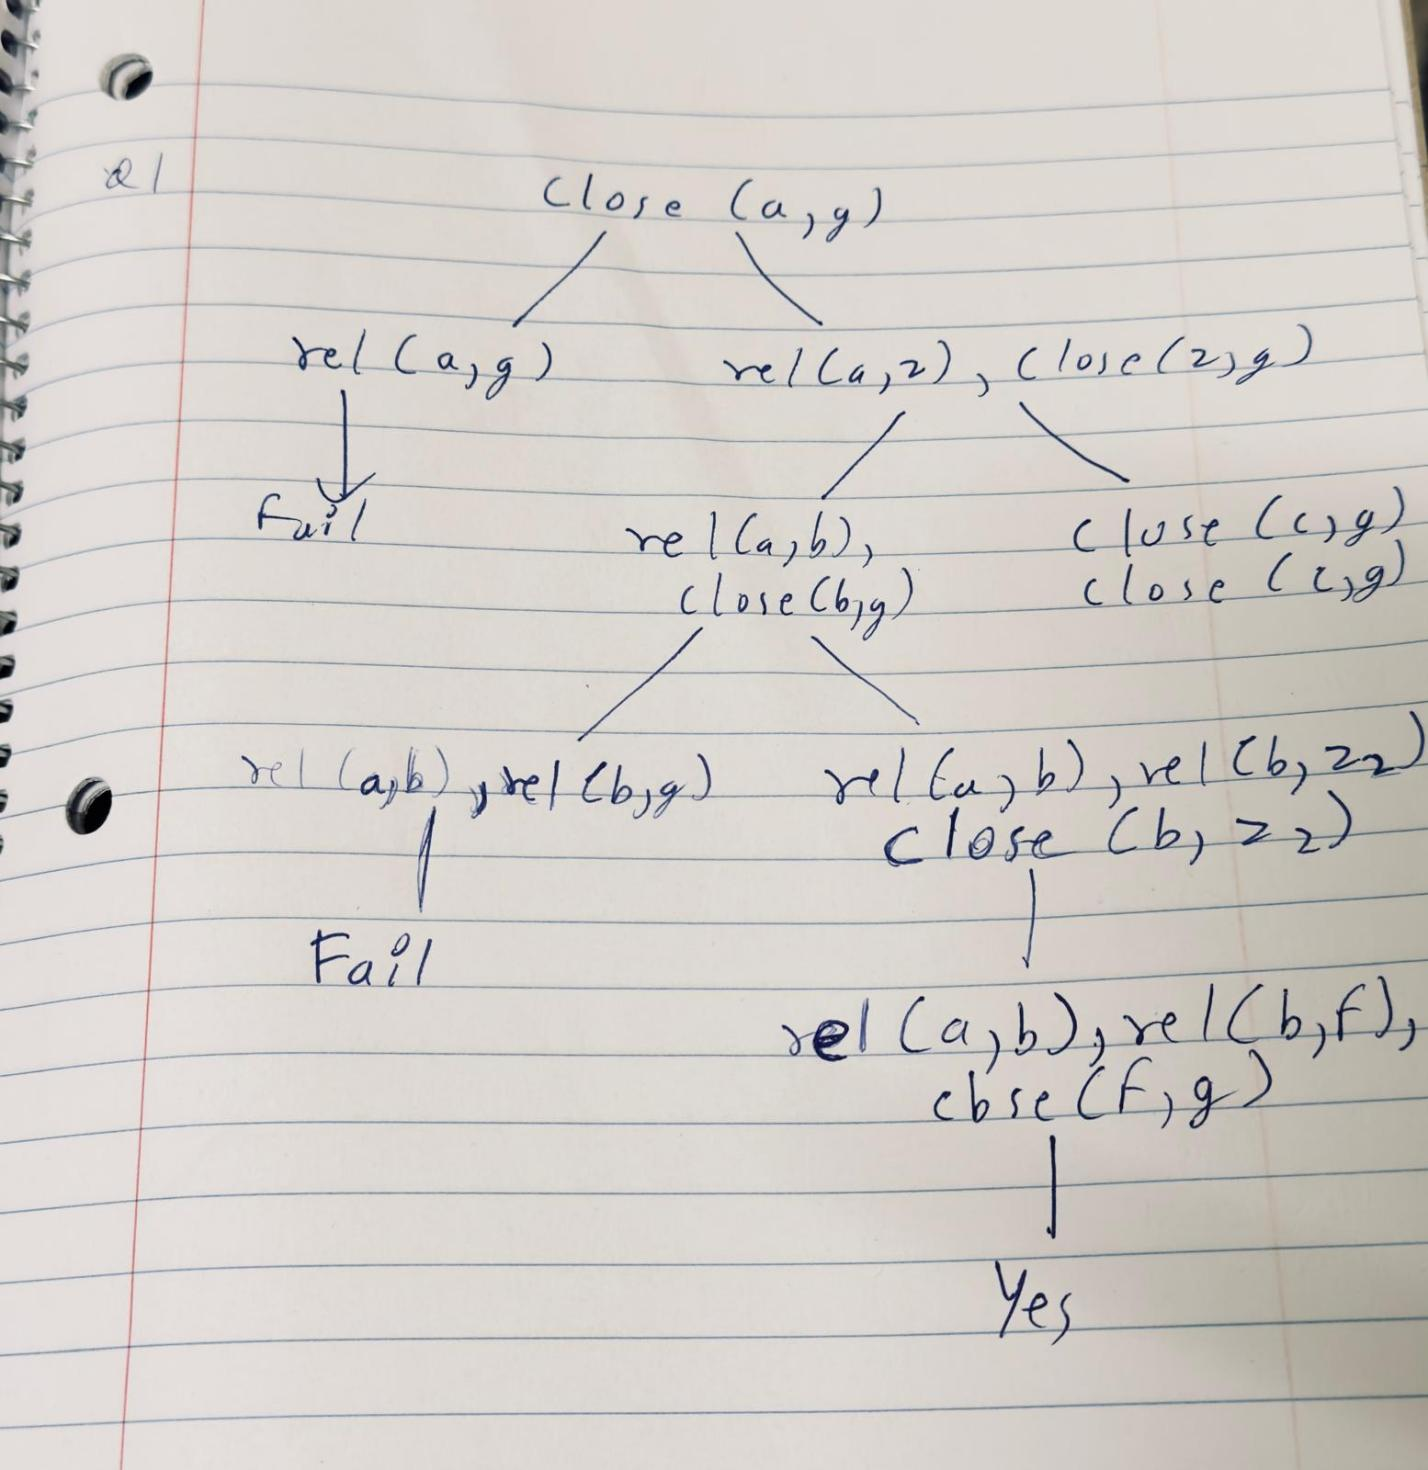 Q1
Close (a,g)
rel (a,g) rel(a,z), Close(z,g)
Fail
rel(a,b), close (c,g)
close(b,g) close (c,g)
rel (a,b), rel (b,g) rel (a,b), rel (b, z2)
close (b, z2)
Fail
rel (a,b), rel (b,f),
close (f,g)
Yes